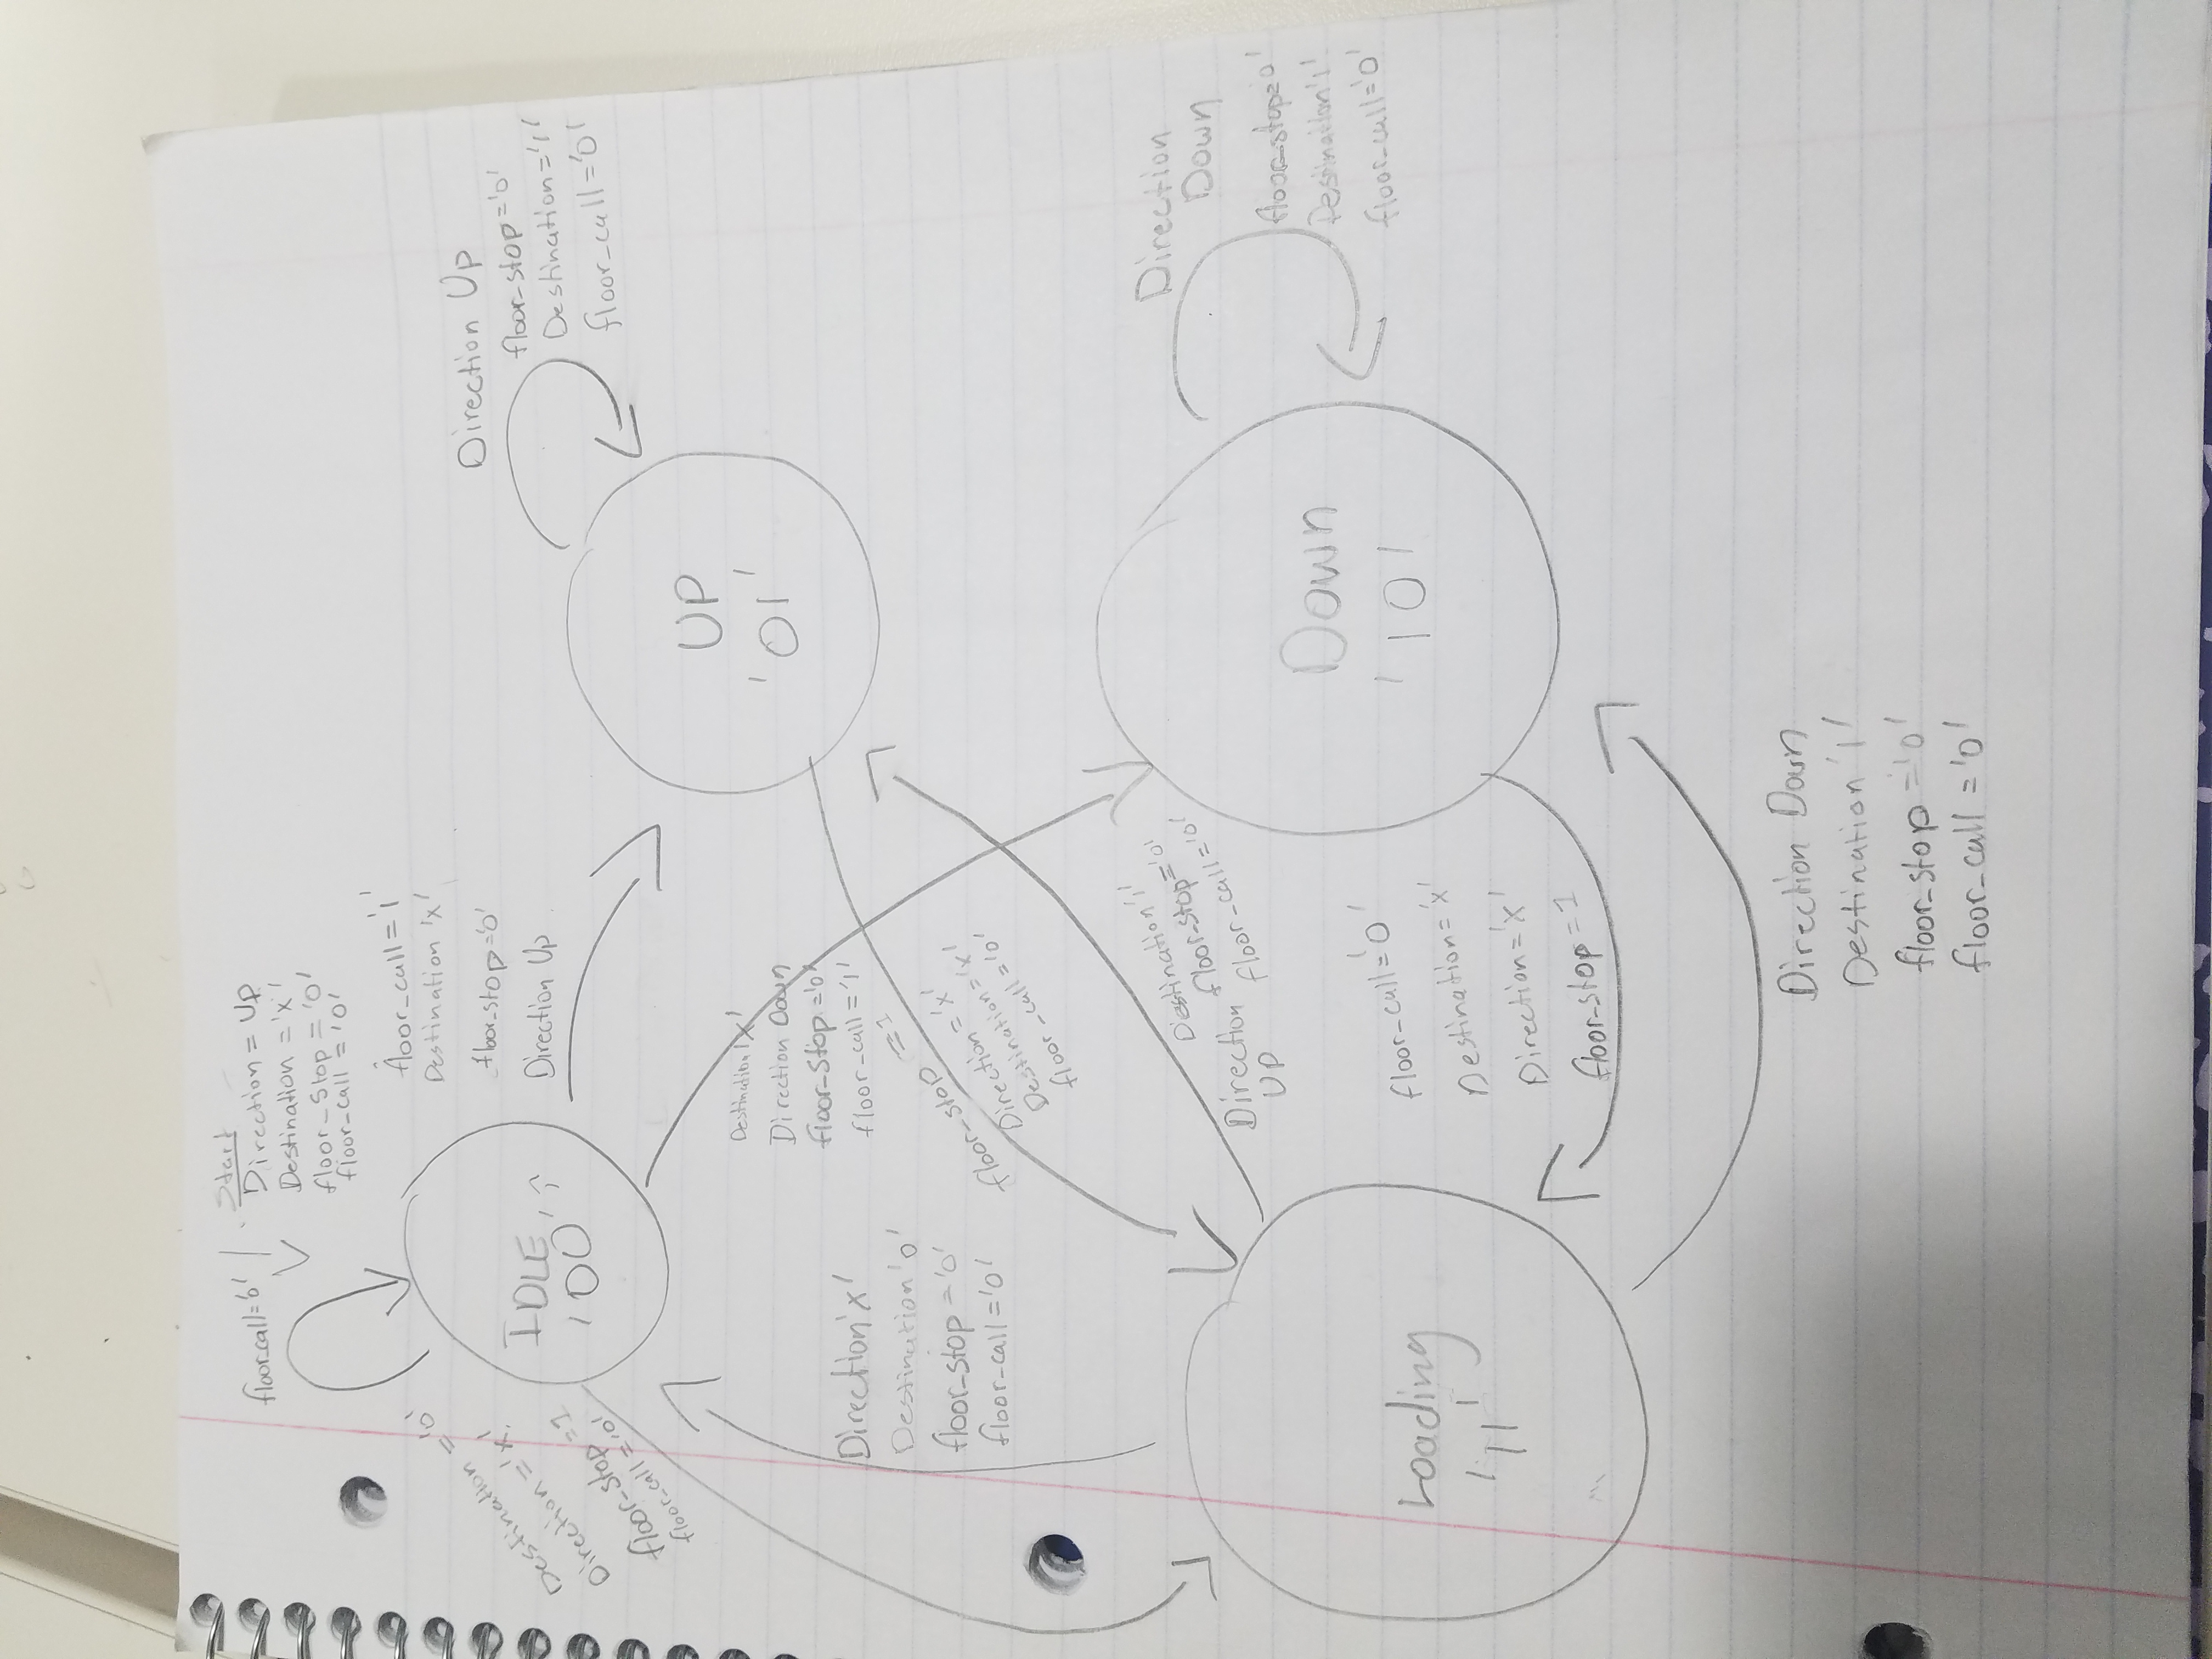 floor_call='0'
Start
Direction = UP
Destination = 'x'
floor_Stop = '0'
floor_call = '0'
floor_call='1'
Destination 'x'
floor_stop='0'
Direction Up
Destination = '0'
Direction = 'x'
floor_stop = 1
floor_call = '0'
IDLE
'00'
Direction Up
floor_stop='0'
Destination='1'
floor_call='0'
UP
'01'
Destination 'x'
Direction Down
floor_Stop='0'
floor_call='1'
Direction 'x'
Destination '0'
floor_stop='0'
floor_call='0'
floor_stop = 1
Direction='x'
Destination='x'
floor_call='0'
Destination '1'
floor_stop='0'
floor_call='0'
Direction
UP
Direction
Down
floor_stop=0'
Destination '1'
floor_call='0'
Down
'10'
Loading
'11'
floor_call='0'
Destination='x'
Direction='x'
floor_stop=1
Direction Down
Destination '1'
floor_stop = '0'
floor_call = '0'